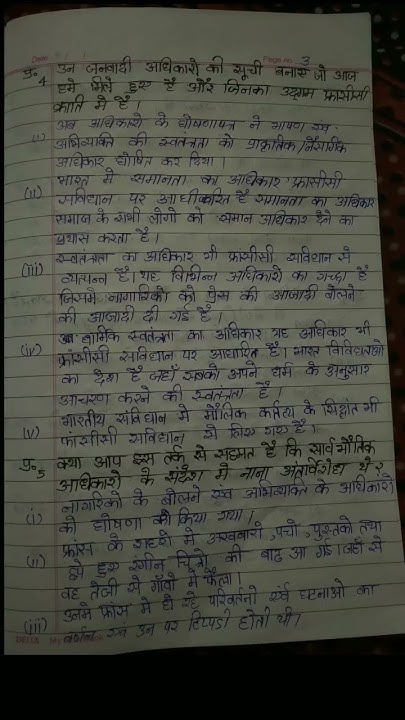 Date
Page no. 3
प्र.4 उन जनवादी अधिकारों की सूची बनाएं जो आज
हमे मिले हुए हैं और जिनका उदगम फ्रांसीसी
क्रांति में है।
(i) अब अधिकारों के घोषणापत्र ने भाषण एवं
अभिव्यक्ति की स्वतंत्रता को प्राकृतिक नैसर्गिक
अधिकार घोषित कर दिया।
(ii) भारत में समानता का अधिकार फ्रांसीसी
संविधान पर आधीकरित है समानता का अधिकार
समाज के सभी लोगों को समान अधिकार देने का
प्रयास करता है।
(iii) स्वतंत्रता का अधिकार भी फ्रांसीसी संविधान से
है। यह विभिन्न अधिकारों का गुच्छा है
जिसमें नागरिकों को प्रेस की आजादी बोलने
की आजादी दी गई है।
(iv) धार्मिक स्वतंत्रता का अधिकार यह अधिकार भी
फ्रांसीसी संविधान पर आधारित है। भारत
का देश है जहाँ सबको अपने धर्म के अनुसार
आचरण करने की स्वतंत्रता है।
(v) भारतीय संविधान में मौलिक कर्तव्य के सिद्धांत भी
फांसीसी संविधान से लिए गए है।
प्र.5 क्या आप इस तर्क से सहमत है कि सार्वभौमिक
अधिकारों के संदेश में नाना अंतर्विरोध थे?
(i) नागरिकों के बोलने एवं अभिव्यक्ति के अधिकारों
की घोषणा की किया गया।
(ii) फ्रांस के शहरों में अखबारों, पर्चो, पुस्तकों तथा
छपे हुए रंगीन चित्रो की बाढ़ आ गई। जहाँ से
वह तेजी से गाँवो में फैला।
(iii) उनमे फ्रांस में हो रहे परिवर्तनो एवं घटनाओं का
वर्णन एवं उन पर टिप्पडी होती थी।